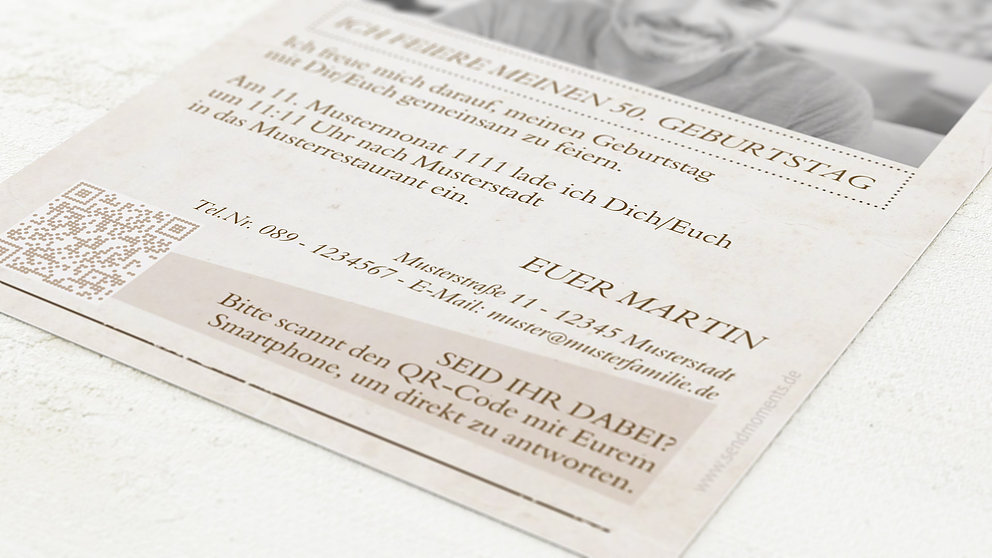 ICH FEIERE MEINEN 50. GEBURTSTAG
Ich freue mich darauf, meinen Geburtstag
mit Dir/Euch gemeinsam zu feiern.
Am 11. Mustermonat 1111 lade ich Dich/Euch
um 11:11 Uhr nach Musterstadt
in das Musterrestaurant ein.
EUER MARTIN
Musterstraße 11 - 12345 Musterstadt
Tel.Nr. 089 - 1234567 - E-Mail: muster@musterfamilie.de
SEID IHR DABEI?
Bitte scannt den QR-Code mit Eurem
Smartphone, um direkt zu antworten.
www.sendmoments.de